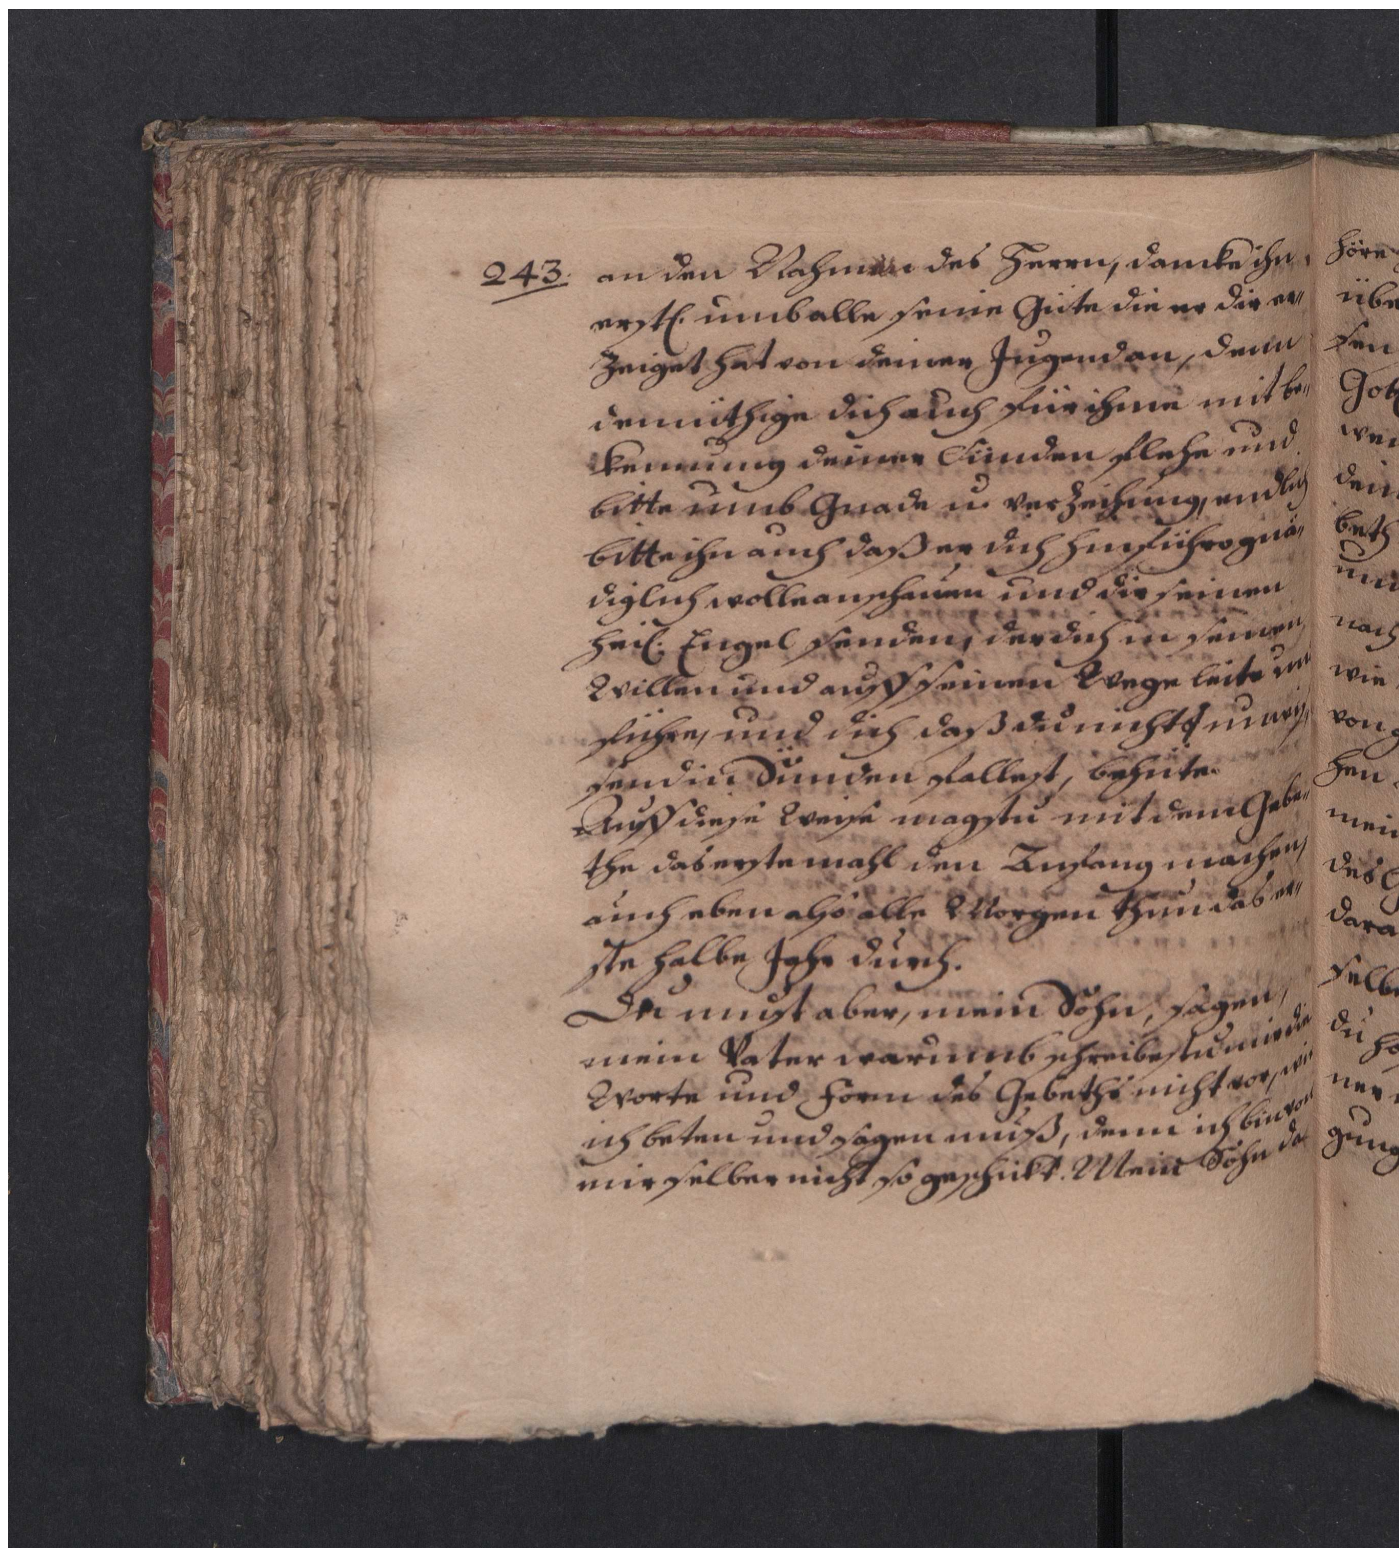 243. an den Nahmen des Herrn, dancke ihm
erstl. umb alle seine Güte die er dir er-
zeiget hat von deiner Jugend an, denn
demüthige dich auch für ihme mit be-
kennung deiner Sünden flehe und
bitte umb Gnade u. verzeihung, endlich
bitte ihn auch daß er dich hinführo gnä-
diglich wolle anschauen und dir seinen
heil. Engel senden, der dich in seinen
Willen und auff seinen Wege leite und
führe, und dich daß du nicht unwis-
send in Sünden fallest, behüte.
Auff diese Weise magstu mit dem Gebe-
the das erste mahl den Anfang machen,
auch eben also alle Morgen thun das er-
ste halbe Jahr durch.
Du must aber, mein Sohn, sagen,
mein Vater warumb schreibestu mir die
Worte und Form des Gebeths nicht vor, wie
ich beten und sagen muß, denn ich bin von
mir selber nicht so geschickt. Mein Sohn das
höre
übe
sen
Got
wei
dein
beth
und
nach
wie
von
hen
mein
des
dara
selbe
du
ner
gung